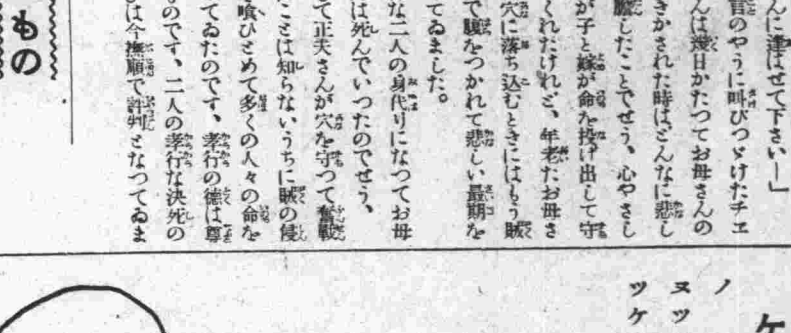 んに逢はせて下さい―」
言のやうに叫びつゞけたチエ
んは幾日かたつてお母さんの
きかされた時はどんなに悲し
膽したことでせう、心やさし
が子と嫁が命を投げ出して守
くれたけれど、年老たお母さ
穴に落ち込むときにはもう賊
で腹をつかれて悲しい最期を
てゐました。
な二人の身代りになつてお母
は死んでいつたのでせう、
て正夫さんが穴を守つて奮戰
ことは知らないうちに賊の侵
喰ひとめて多くの人々の命を
てゐたのです、孝行の德は尊
ものです、二人の孝行な決死の
は今撫順で評判となつてゐま
もの
ケ
ノ
ヌツ
ツケ